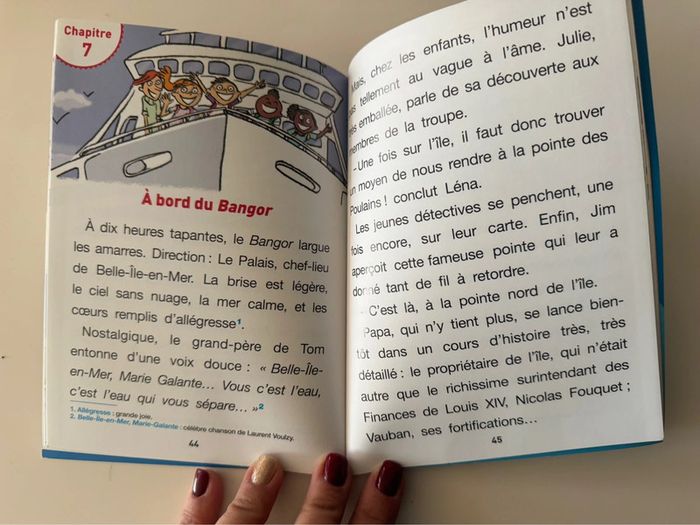 Chapitre
7
À bord du Bangor
À dix heures tapantes, le Bangor largue
les amarres. Direction : Le Palais, chef-lieu
de Belle-Île-en-Mer. La brise est légère,
le ciel sans nuage, la mer calme, et les
cœurs remplis d'allégresse¹.
Nostalgique, le grand-père de Tom
entonne d'une voix douce : « Belle-Île-
en-Mer, Marie Galante... Vous c'est l'eau,
c'est l'eau qui vous sépare... »²
1. Allégresse : grande joie.
2. Belle-Île-en-Mer, Marie-Galante : célèbre chanson de Laurent Voulzy.
44
Mais, chez les enfants, l'humeur n'est
tellement au vague à l'âme. Julie,
emballée, parle de sa découverte aux
membres de la troupe.
-Une fois sur l'île, il faut donc trouver
un moyen de nous rendre à la pointe des
Poulains ! conclut Léna.
Les jeunes détectives se penchent, une
fois encore, sur leur carte. Enfin, Jim
aperçoit cette fameuse pointe qui leur a
donné tant de fil à retordre.
- C'est là, à la pointe nord de l'île.
Papa, qui n'y tient plus, se lance bien-
tôt dans un cours d'histoire très, très
détaillé : le propriétaire de l'île, qui n'était
autre que le richissime surintendant des
Finances de Louis XIV, Nicolas Fouquet ;
Vauban, ses fortifications...
45